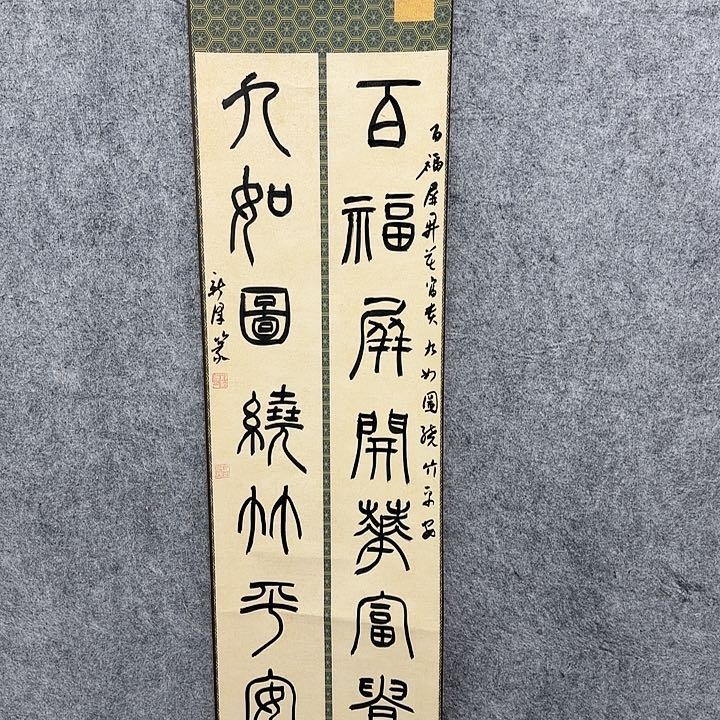 百福屏開華富貴
百福屏开花富贵九如圖繞竹平安
九如圖繞竹平安
新泽篆